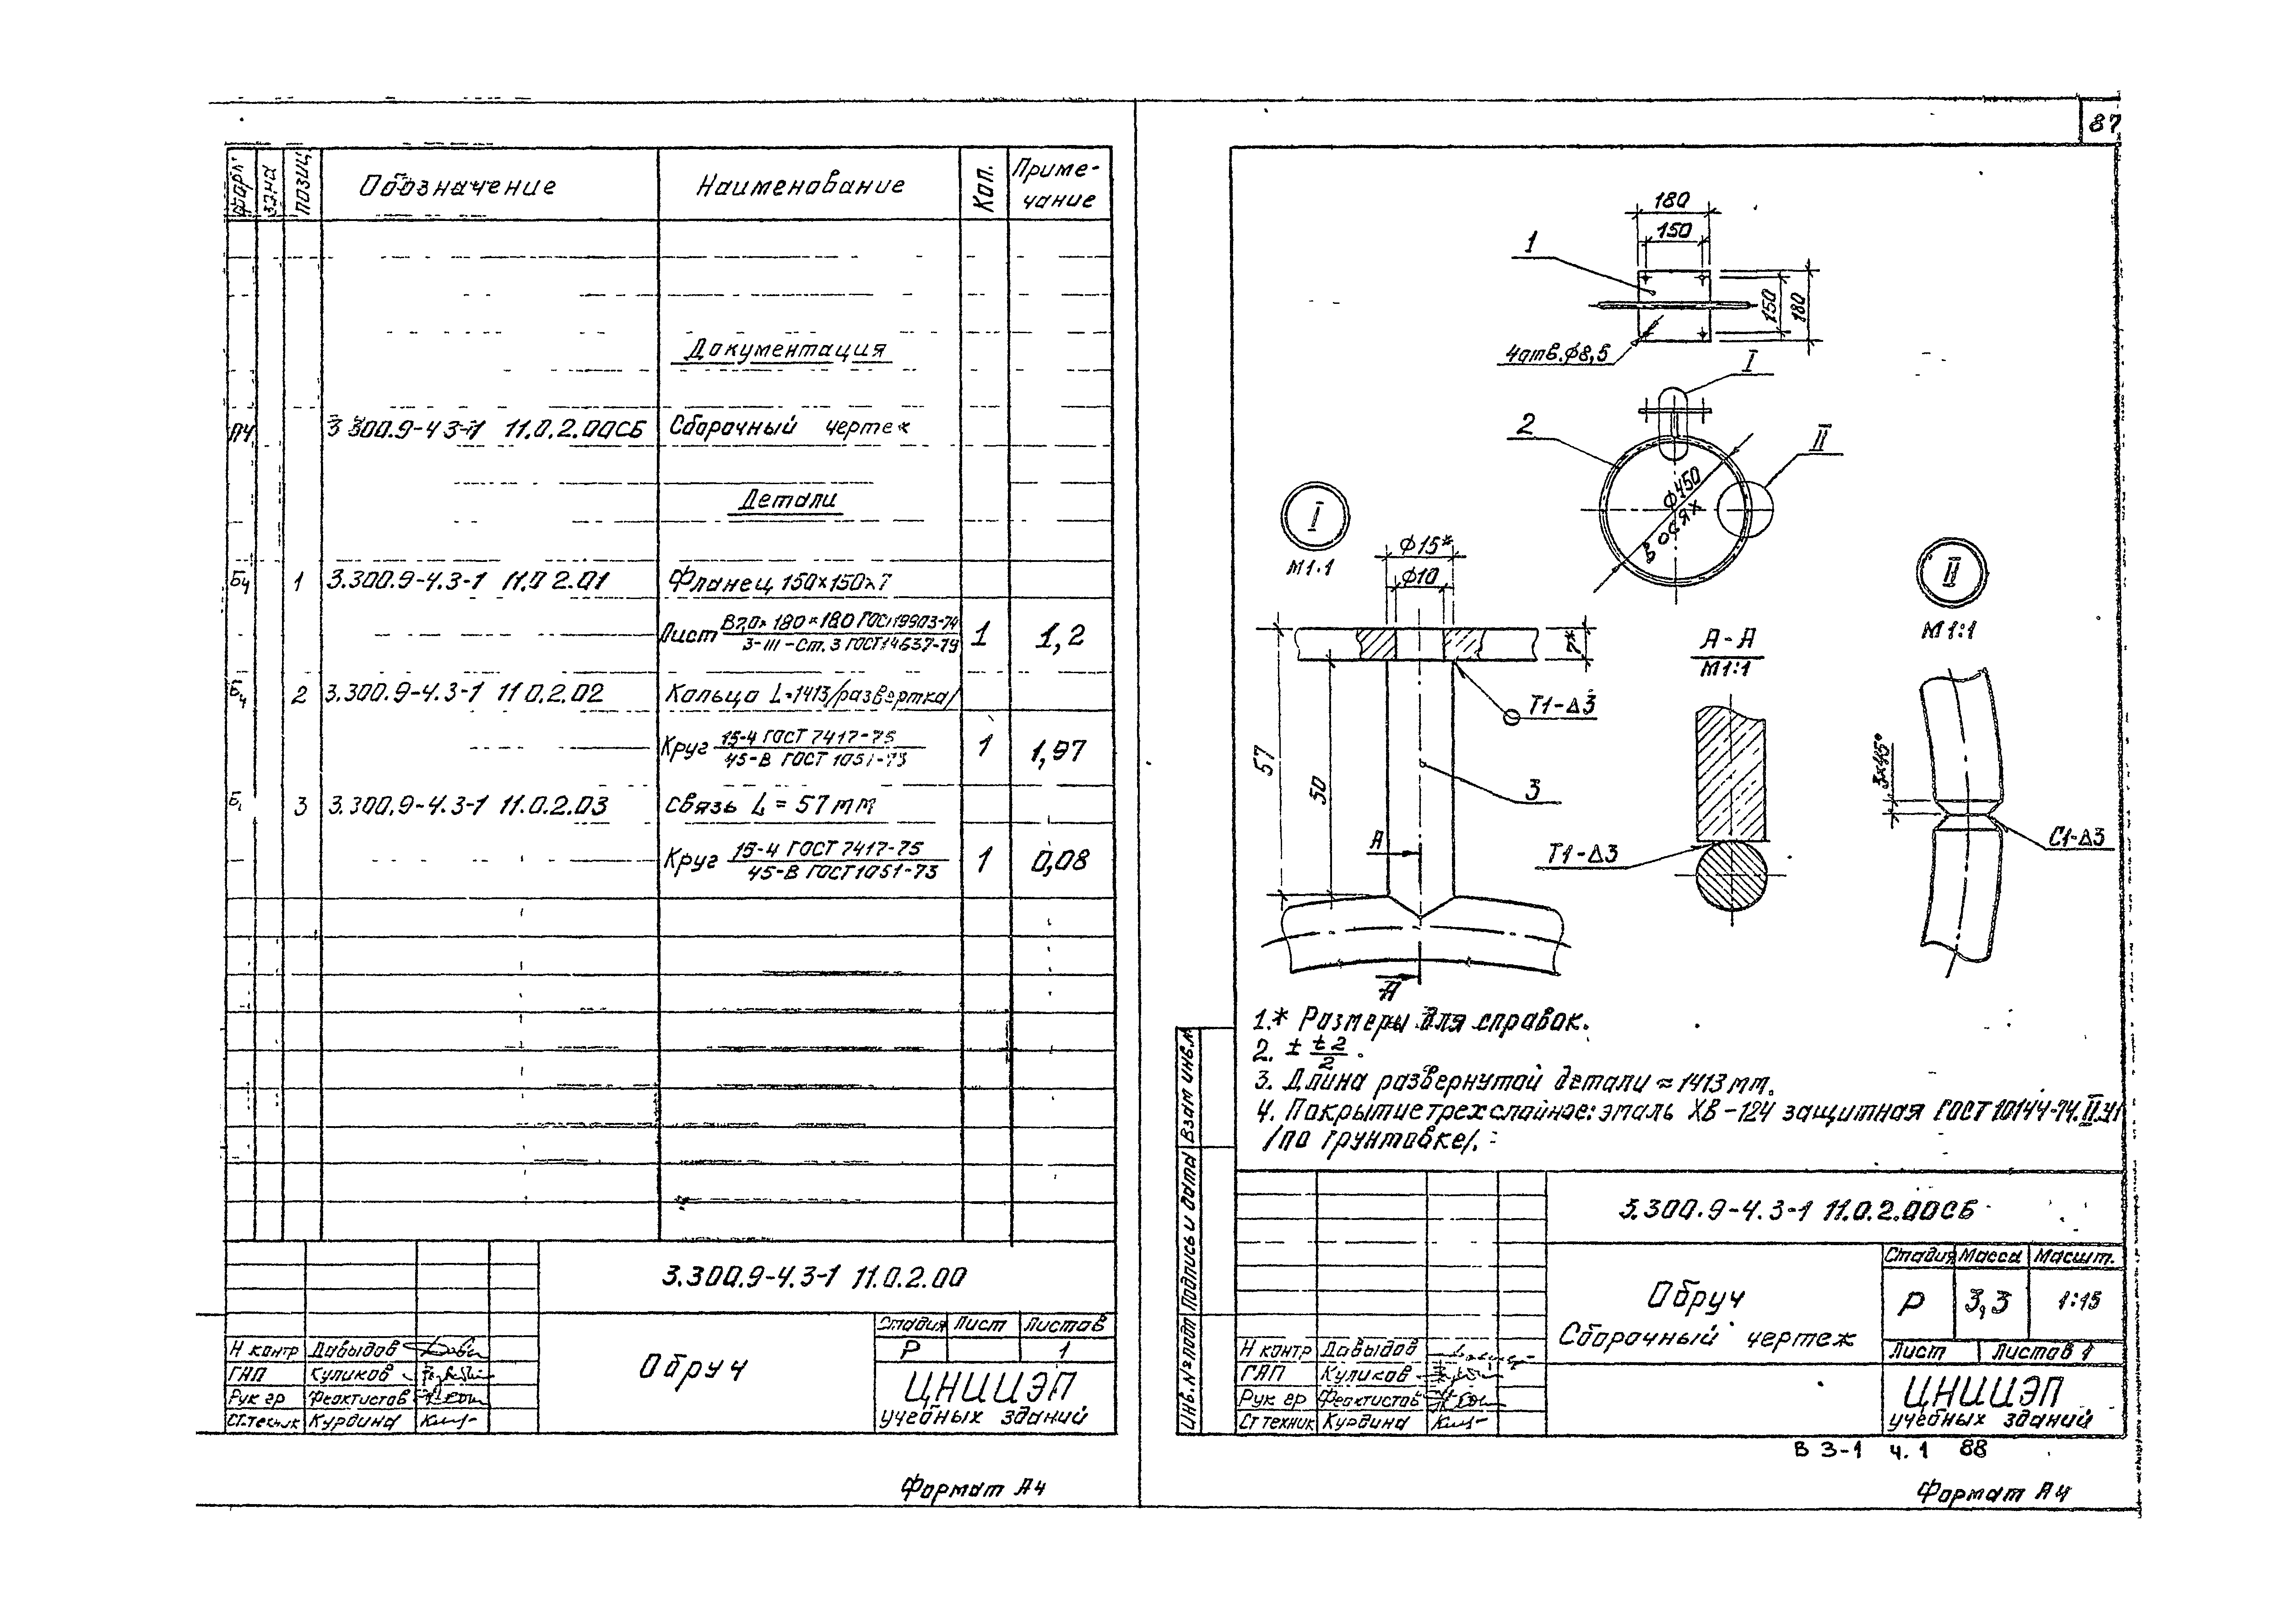 87
Форм. Зона Позиц. Обозначение Наименование Кол. Приме-
чание
Документация
А4 3.300.9-4.3-1 11.0.2.00СБ Сборочный чертеж
Детали
Б4 1 3.300.9-4.3-1 11.0.2.01 Фланец 150×150×7
Лист В7,0×180×180 ГОСТ 19903-74 1 1,2
3-III-Ст.3 ГОСТ 14637-79
Б4 2 3.300.9-4.3-1 11.0.2.02 Кольцо L=1413/развертка/
Круг 15-4 ГОСТ 7417-75 1 1,97
45-В ГОСТ 1051-73
3 3.300.9-4.3-1 11.0.2.03 Связь L = 57мм
Круг 15-4 ГОСТ 7417-75 1 0,08
45-В ГОСТ 1051-73
3.300.9-4.3-1 11.0.2.00
Обруч
Стадия Лист Листов
Р 1
Н контр Давыдов
ГАП Куликов
Рук гр Феоктистов
Ст.техник Курдина
ЦНИИЭП
учебных зданий
Формат А4
180
150
1
150
180
4отв.ϕ8,5
I
2
II
ϕ450
в осях
I
М1:1
ϕ15*
ϕ10
7*
Т1-Δ3
57
50
3
А
А
А-А
М1:1
Т1-Δ3
II
М1:1
3×45°
С1-Δ3
1.* Размеры для справок.
2. ± t2/2.
3. Длина развернутой детали ≈ 1413мм.
4. Покрытие трехслойное: эмаль ХВ-124 защитная ГОСТ 10144-74.II.У1
/по грунтовке/.
Взам инв.№
Подпись и дата
Инв.№ подл
3.300.9-4.3-1 11.0.2.00СБ
Обруч
Сборочный чертеж
Стадия Масса Масшт.
Р 3,3 1:15
Лист Листов 1
Н контр Давыдов
ГАП Куликов
Рук гр Феоктистов
Ст техник Курдина
ЦНИИЭП
учебных зданий
В 3-1 ч.1 88
Формат А4